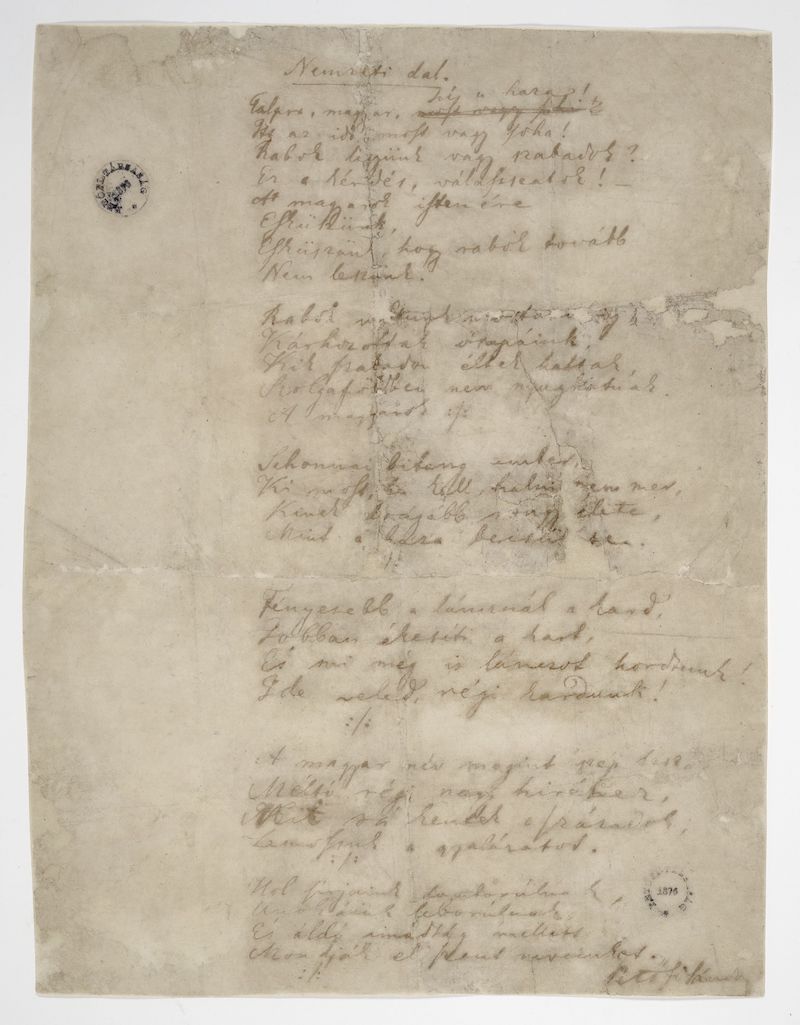 Nemzeti dal.
hí a haza!
Talpra, magyar, most vagy soha
Itt az idő, most vagy soha!
Rabok legyünk vagy szabadok?
Ez a kérdés, válasszatok! –
A magyarok istenére
Esküszünk,
Esküszünk, hogy rabok tovább
Nem leszünk.
Rabok voltunk mostanáig,
Kárhozottak ősapáink,
Kik szabadon éltek haltak,
Szolgaföldben nem nyughatnak.
A magyarok :/:
Sehonnai bitang ember,
Ki most, ha kell, halni nem mer,
Kinek drágább rongy élete,
Mint a haza becsülete.
:/:
Fényesebb a láncznál a kard,
Jobban ékesíti a kart,
És mi még is lánczot hordtunk!
Ide veled, régi kardunk!
:/:
A magyar név megint szép lesz,
Méltó régi nagy hiréhez,
Mit rá kentek a századok,
Lemossuk a gyalázatot.
:/:
Hol sirjaink domborúlnak,
Unokáink leborúlnak,
És áldó imádság mellett
Mondják el szent neveinket.
:/:
Petőfi Sándor
1876